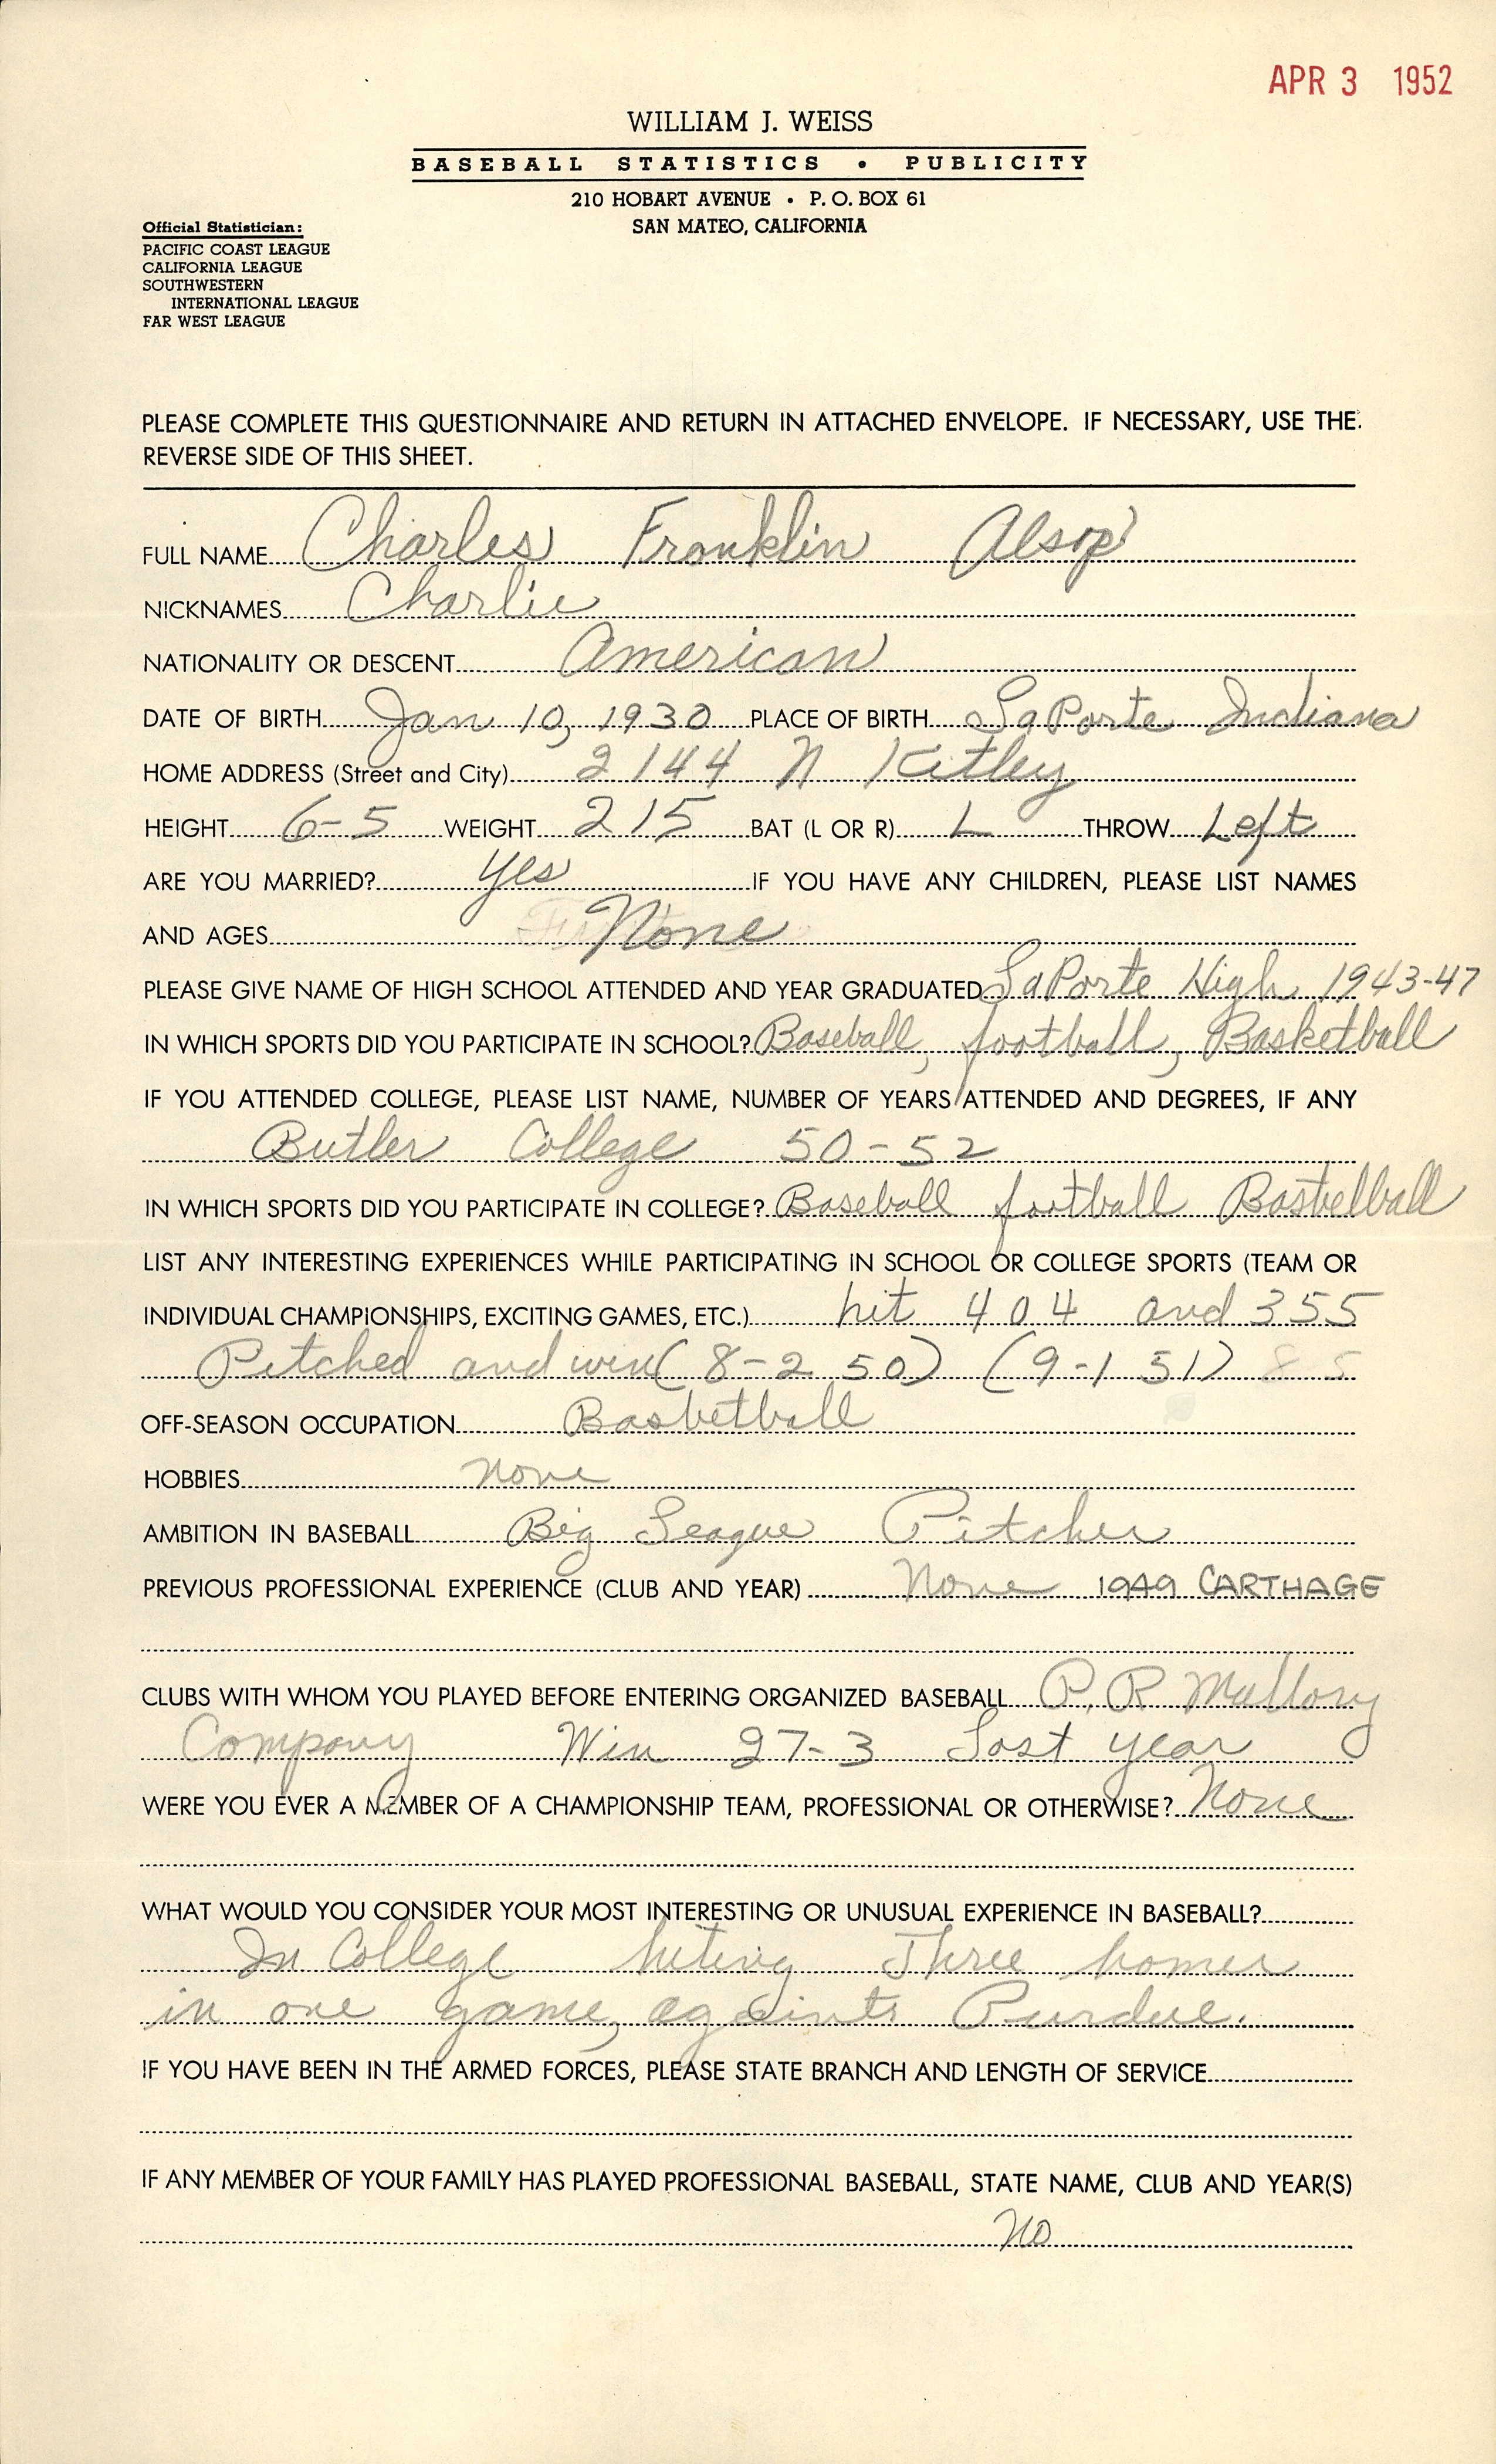 APR 3 1952
WILLIAM J. WEISS
BASEBALL STATISTICS • PUBLICITY
210 HOBART AVENUE • P. O. BOX 61
SAN MATEO, CALIFORNIA
Official Statistician:
PACIFIC COAST LEAGUE
CALIFORNIA LEAGUE
SOUTHWESTERN
INTERNATIONAL LEAGUE
FAR WEST LEAGUE
PLEASE COMPLETE THIS QUESTIONNAIRE AND RETURN IN ATTACHED ENVELOPE. IF NECESSARY, USE THE
REVERSE SIDE OF THIS SHEET.
FULL NAME Charles Franklin Alsop
NICKNAMES Charlie
NATIONALITY OR DESCENT American
DATE OF BIRTH Jan 10, 1930 PLACE OF BIRTH LaPorte Indiana
HOME ADDRESS (Street and City) 2144 N Kitley
HEIGHT 6-5 WEIGHT 215 BAT (L OR R) L THROW Left
ARE YOU MARRIED? yes IF YOU HAVE ANY CHILDREN, PLEASE LIST NAMES
AND AGES None
PLEASE GIVE NAME OF HIGH SCHOOL ATTENDED AND YEAR GRADUATED LaPorte High 1943-47
IN WHICH SPORTS DID YOU PARTICIPATE IN SCHOOL? Baseball, football, Basketball
IF YOU ATTENDED COLLEGE, PLEASE LIST NAME, NUMBER OF YEARS ATTENDED AND DEGREES, IF ANY
Butler College 50-52
IN WHICH SPORTS DID YOU PARTICIPATE IN COLLEGE? Baseball football Basketball
LIST ANY INTERESTING EXPERIENCES WHILE PARTICIPATING IN SCHOOL OR COLLEGE SPORTS (TEAM OR
INDIVIDUAL CHAMPIONSHIPS, EXCITING GAMES, ETC.) hit 404 and 355
Pitched and win (8-2 50) (9-1 51) 85
OFF-SEASON OCCUPATION Basketball
HOBBIES none
AMBITION IN BASEBALL Big League Pitcher
PREVIOUS PROFESSIONAL EXPERIENCE (CLUB AND YEAR) None 1949 CARTHAGE
CLUBS WITH WHOM YOU PLAYED BEFORE ENTERING ORGANIZED BASEBALL P. R Mallory
Company Win 27-3 Last year
WERE YOU EVER A MEMBER OF A CHAMPIONSHIP TEAM, PROFESSIONAL OR OTHERWISE? None
WHAT WOULD YOU CONSIDER YOUR MOST INTERESTING OR UNUSUAL EXPERIENCE IN BASEBALL?
In College hiting Three homer
in one game, againts Purdue.
IF YOU HAVE BEEN IN THE ARMED FORCES, PLEASE STATE BRANCH AND LENGTH OF SERVICE
IF ANY MEMBER OF YOUR FAMILY HAS PLAYED PROFESSIONAL BASEBALL, STATE NAME, CLUB AND YEAR(S)
No